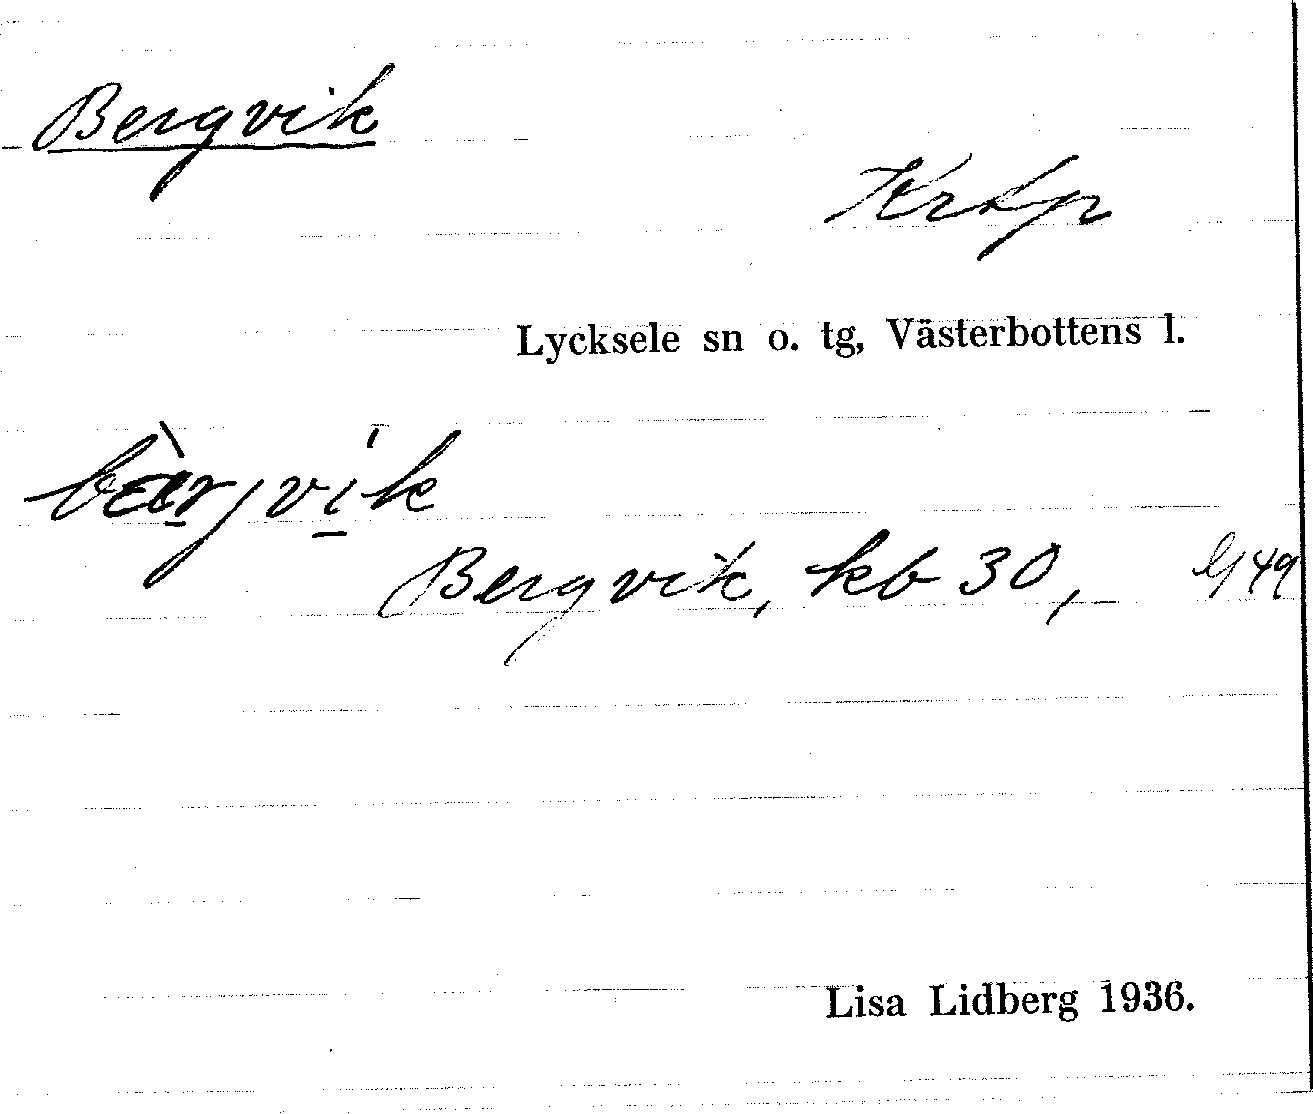 Bergvik
Krtp
Lycksele sn o. tg, Västerbottens l.
Bergvik, kb 30,
Lisa Lidberg 1936.